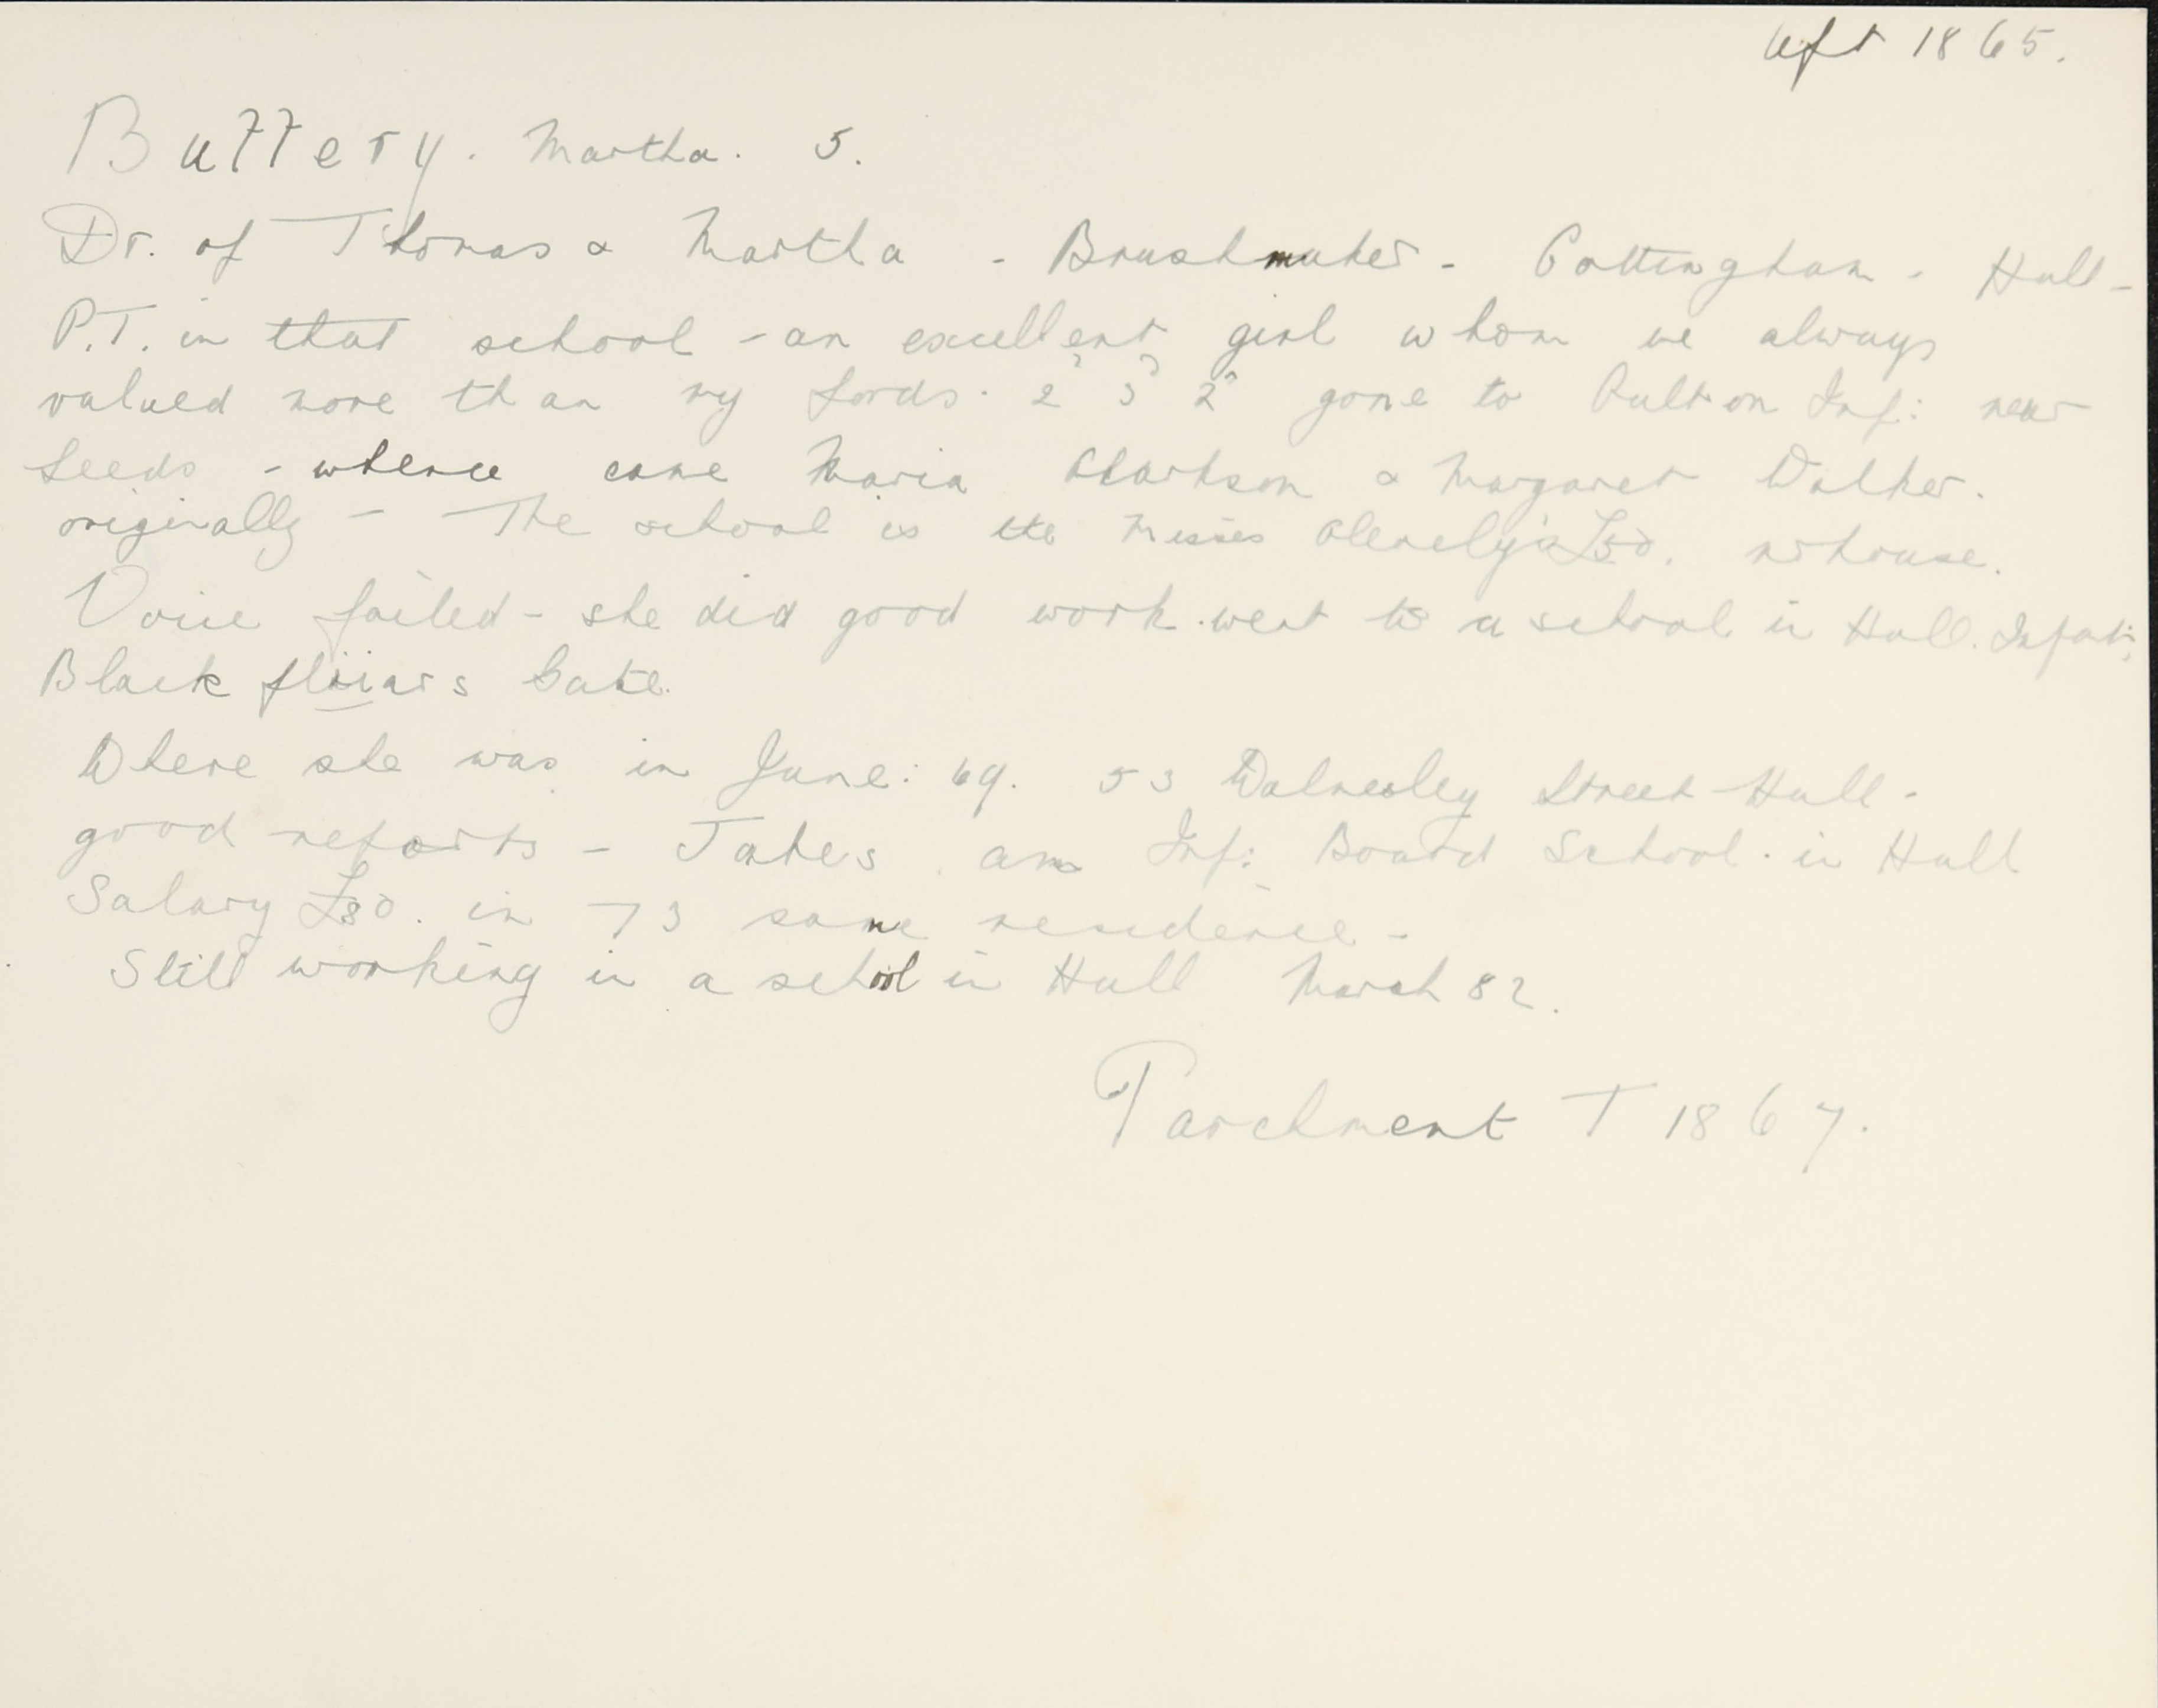 left 1865.
Buttery. Martha. 5.
Dr. of Thomas & Martha - Brushmaker - Cottingham - Hull -
P.T. in that school - an excellent girl whom we always
valued more than my Lords. 2" 3" 2" gone to Oulton Inf: near
Leeds - whence came Maria Clarkson & Margaret Walker.
originally - The school is the Misses £50. no house.
Voice failed - she did good work. went to a school in Hull. Infats;
Black fliiars Gate.
Where she was in June: 69. 53 Walmsley Street - Hull -
good reports - Takes an Inf: Board School. in Hull
Salary £80. in 73 same residence -
Still working in a school in Hull March 82.
Parchment T 1867.